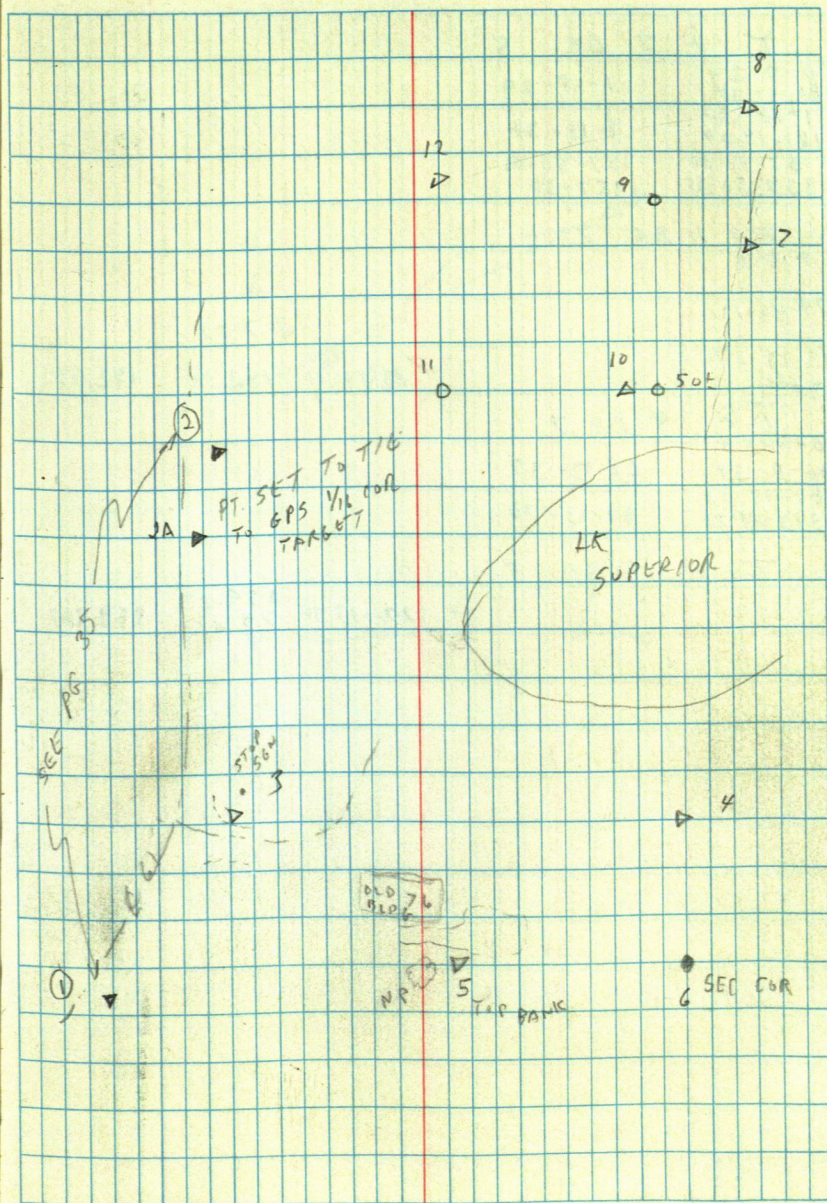 8
12
9
7
11
10
50±
2
PT. SET TO TIE
TO GPS 1/16 COR
TARGET
2A
LK
SUPERIOR
SEE PG 35
STOP
SGN
3
4
OLD 76
BLDG
1
NP
5
TOP BANK
6
SEC COR